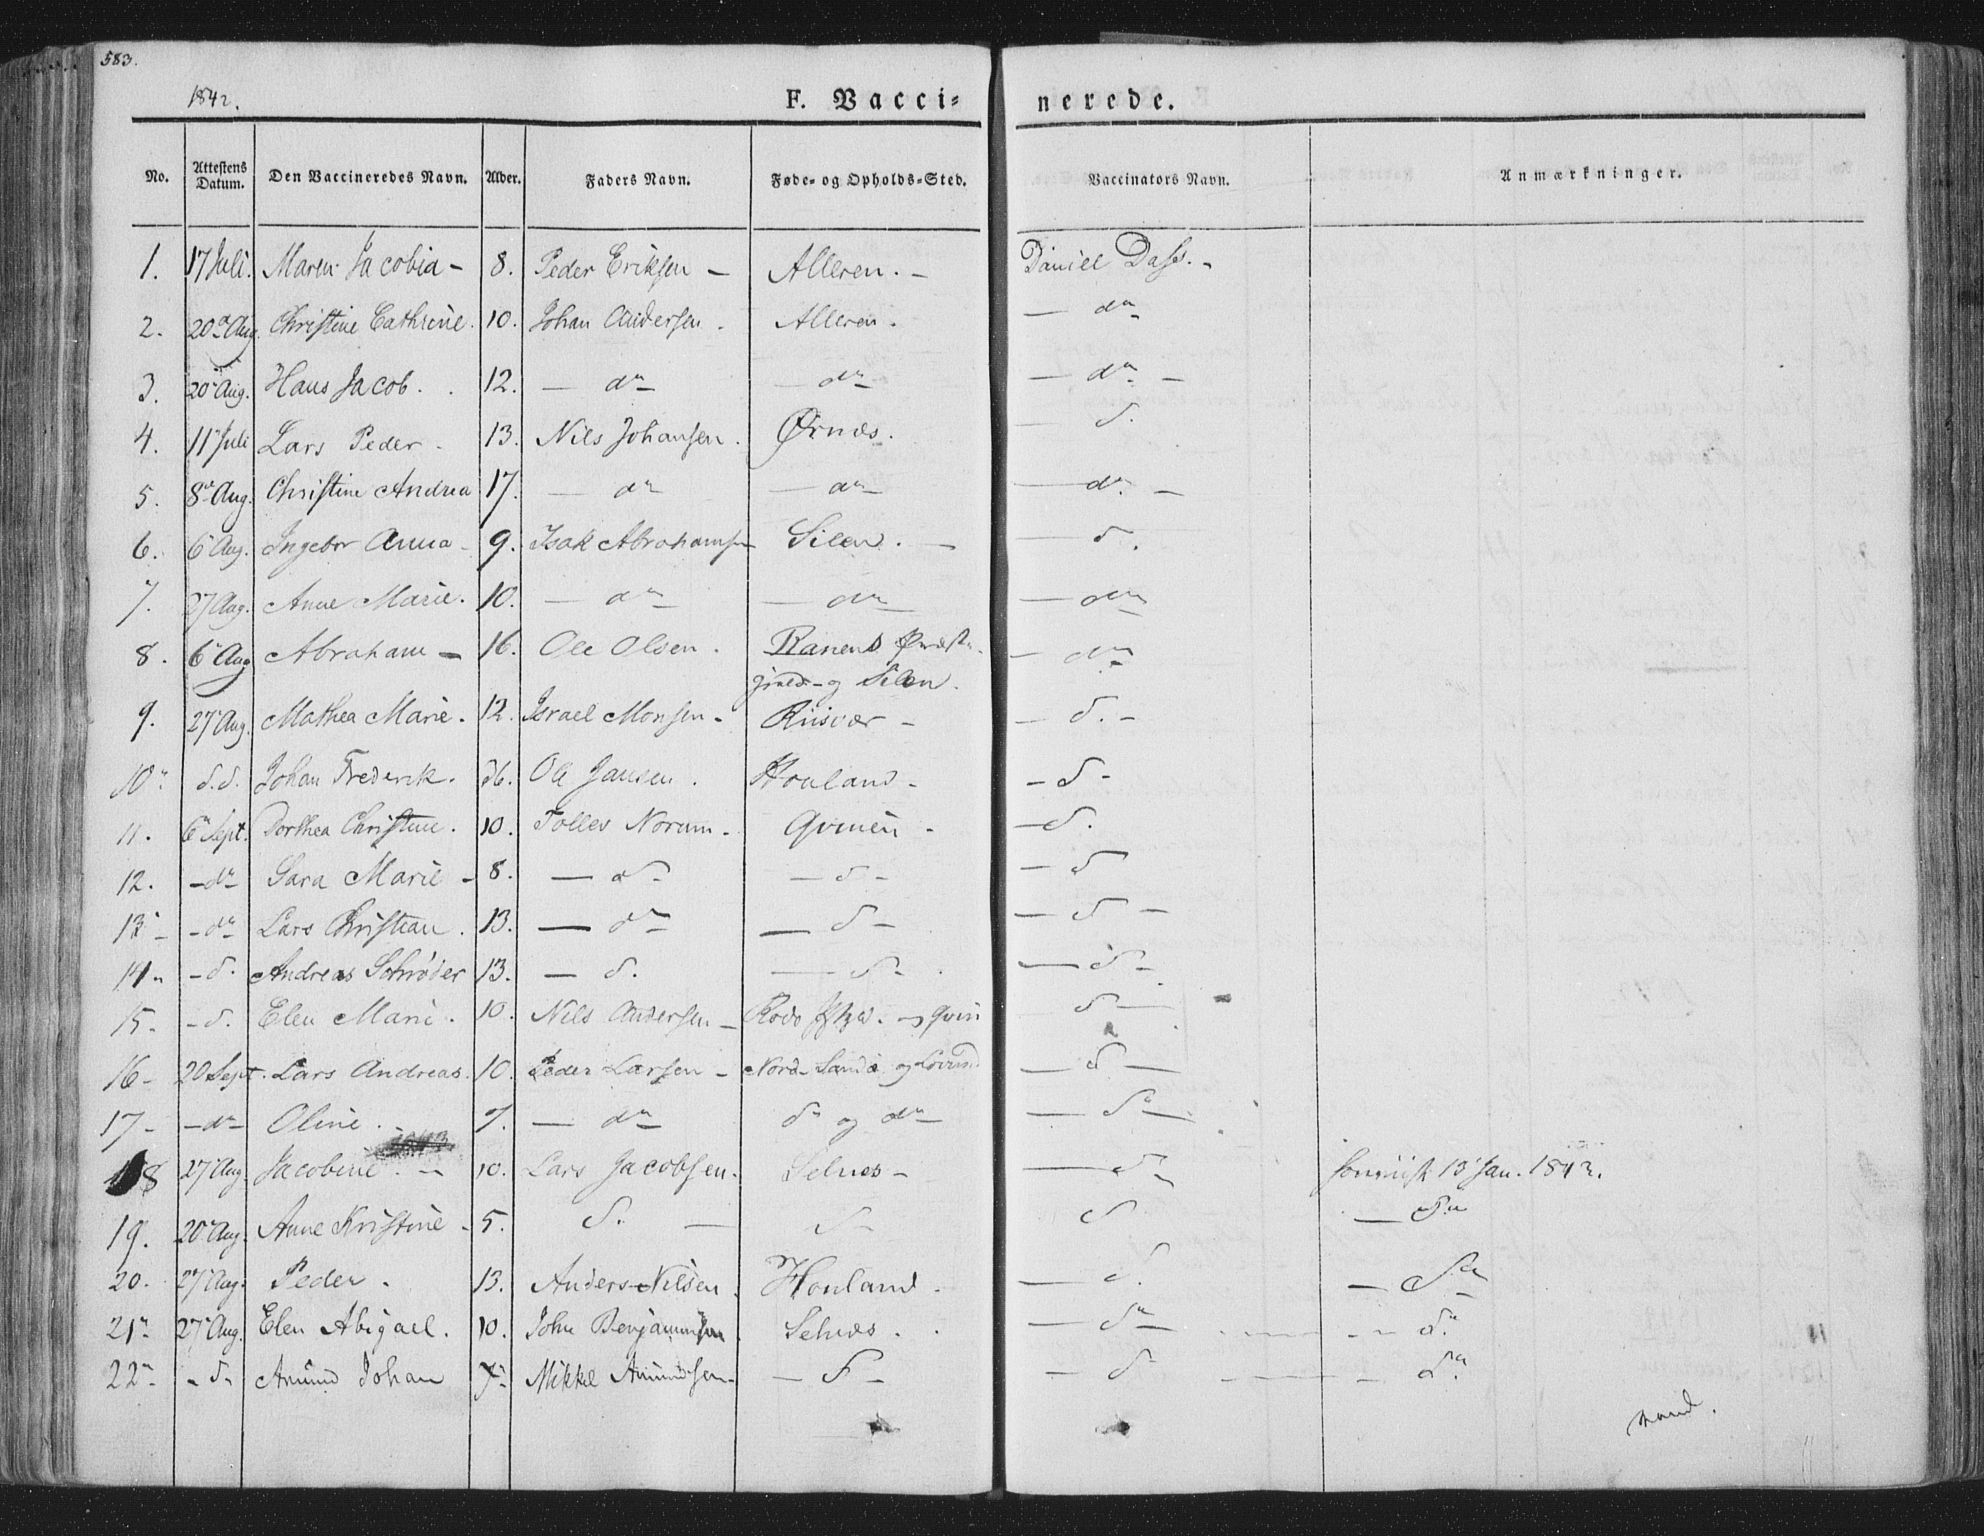 583.
1842.
F. Vacci= nerede.
No. Attestens Datum. Den Vaccineredes Navn. Alder. Faders Navn. Føde- og Opholds-Sted. Vaccinators Navn. Anmærkninger.
1. 17 Juli. Maren Jacobia - 8. Peder Eriksen - Alleren. - Daniel Dass. -
2. 20 Aug. Christine Cathrine. 10. Johan Andersen. Alleren. - do
3. 20 Aug. Hans Jacob. 12. - do - - do - - do -
4. 11 Juli Lars Peder. 13. Nils Johansen. Ørnæs. - d.
5. 8 Aug. Christine Andrea 17. - do - do - - do. -
6. 6 Aug. Ingebor Anna 9. Isak Abrahamsen Silen. - - d.
7. 27 Aug. Anne Marie. 10. - do - do - - do
8. 6 Aug Abraham - 16. Ole Olsen. Ranens Præste-
gjeld - og Silen. - do
9. 27 Aug. Mathea Marie. 12. Israel Monsen - Riisvær - - d. -
10. d. d. Johan Frederik. 36. Ole Jansen. Houland - - d -
11. 6 Sept. Dorthea Christine. 10. Tolles Norum - - d.
12. - do Sara Marie - 8. - d. - d - - d
13 - - do Lars Christian. 13. - do - d - - d -
14. - d. Andreas Schrøder 13. - d. - d - - d -
15. - d. Elen Marie. 10. Nils Andersen - Rødø - og - d -
16 - 20 Sept. Lars Andreas. 10. Peder Larsen - Nord-Sandø og Lovund - d -
17 - - do - Oline. 7. - do d og do - d -
18 27 Aug. Jacobine. - 10. Lars Jacobsen. Selnes - - d 13 Jan. 1843.
19. 20 Aug. Anne Kristine - 5. d. - d - d - do
20. 27 Aug. Peder. 13. Anders Nilsen. Houland. - d. - do
21. 27 Aug. Elen Abigael. 10. John Benjaminsen. Selnæs. - do - - do.
22. - d - Amund Johan 7. Mikkel Amundsen - - d - - d - do.